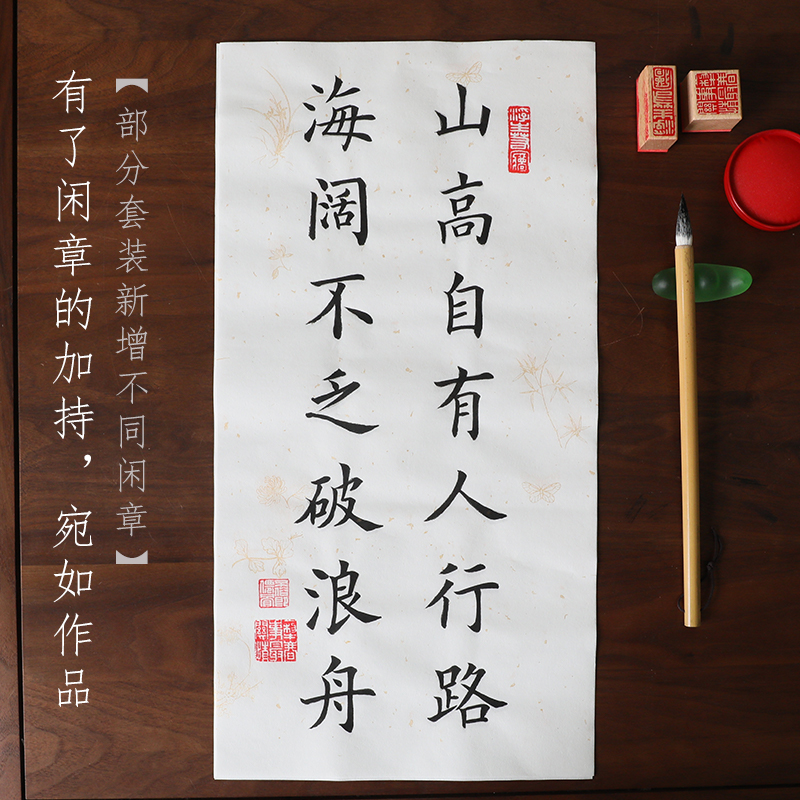 山高自有人行路
海阔不乏破浪舟
【部分套装新增不同闲章】
有了闲章的加持，宛如作品